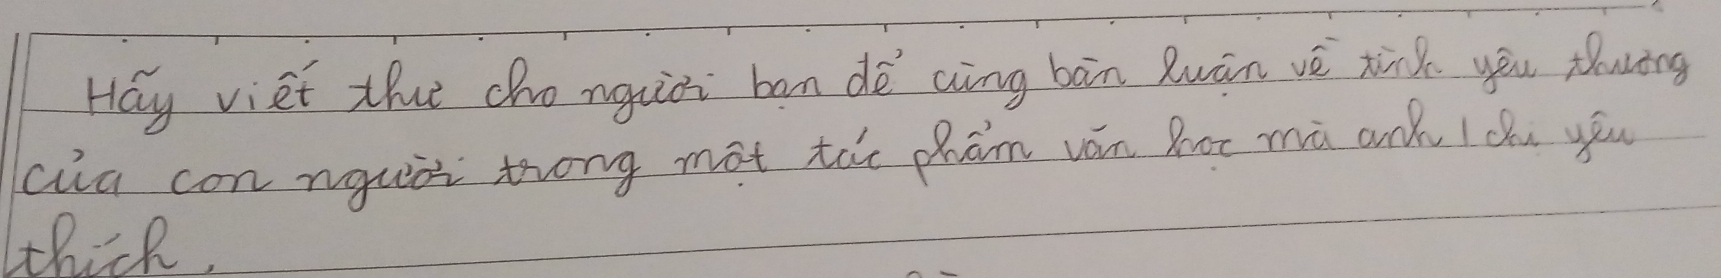 Hãy viết thư cho người bạn để cùng bàn luận về tình yêu thương
của con người trong một tác phẩm văn học mà anh / chị yêu
thích.